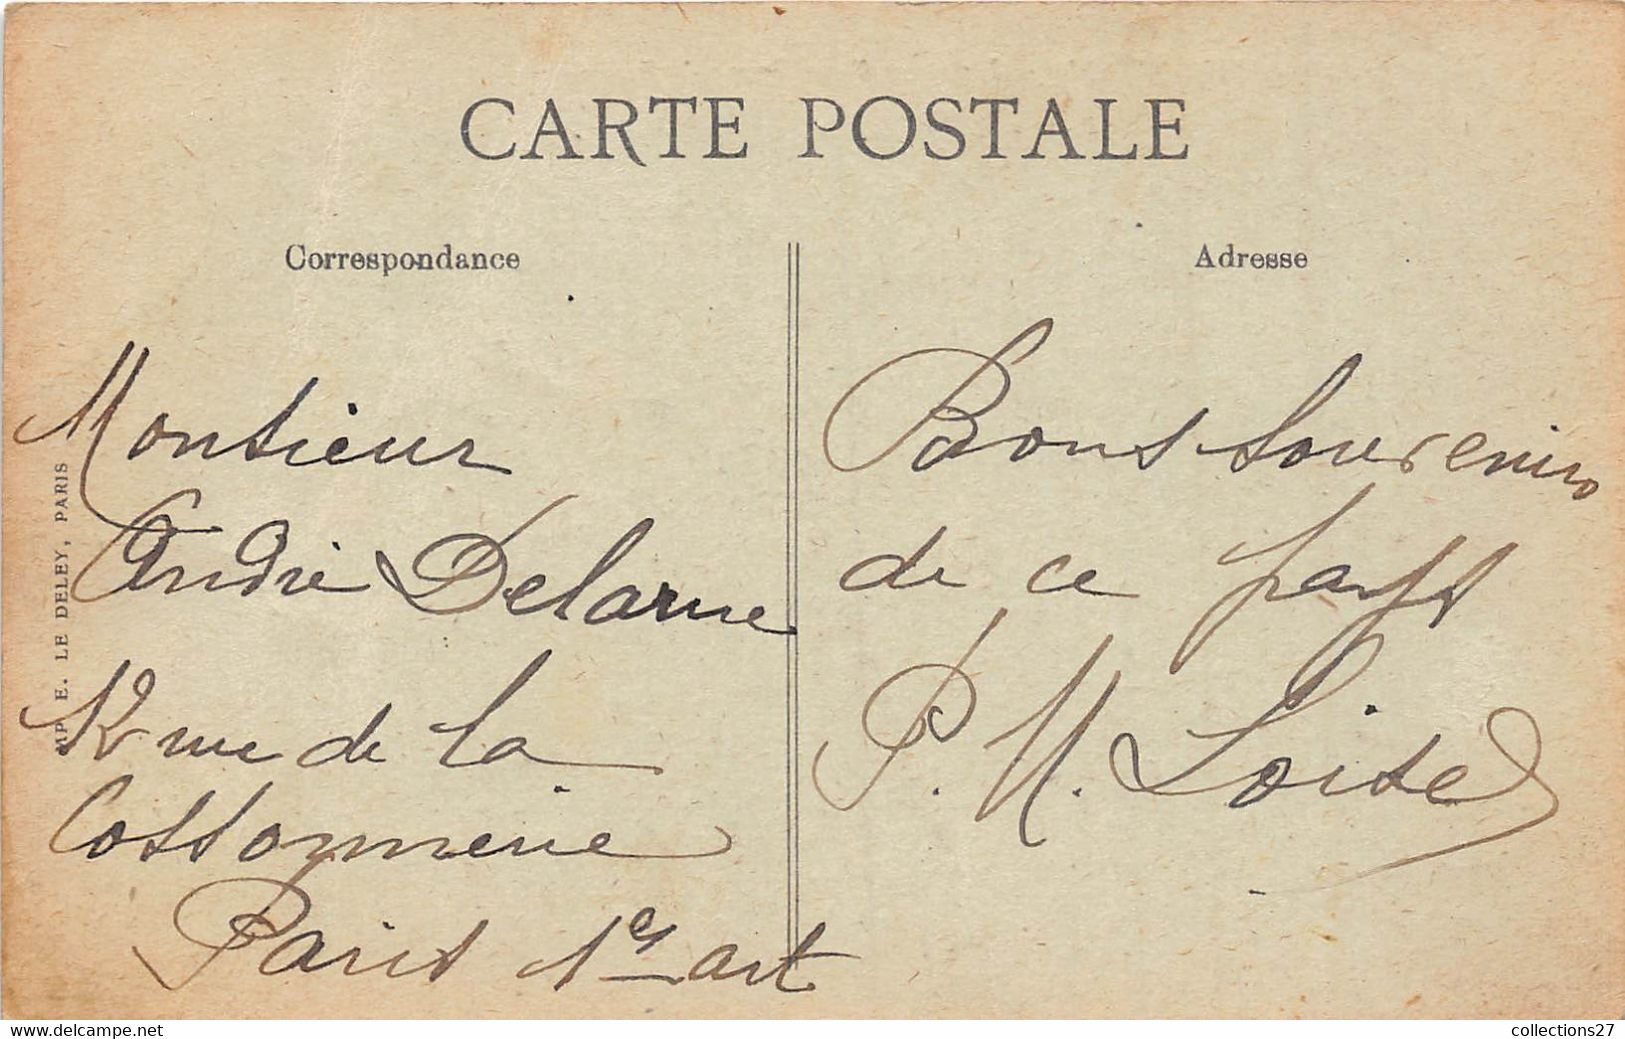 CARTE POSTALE
Correspondance
Adresse
Monsieur
André Delarue
12 rue de la
Cossonnerie
Paris 1er art
Bons souvenirs
de ce pays
P. M. Loisel
IMP. E. LE DELEY, PARIS
www.delcampe.net
collections27